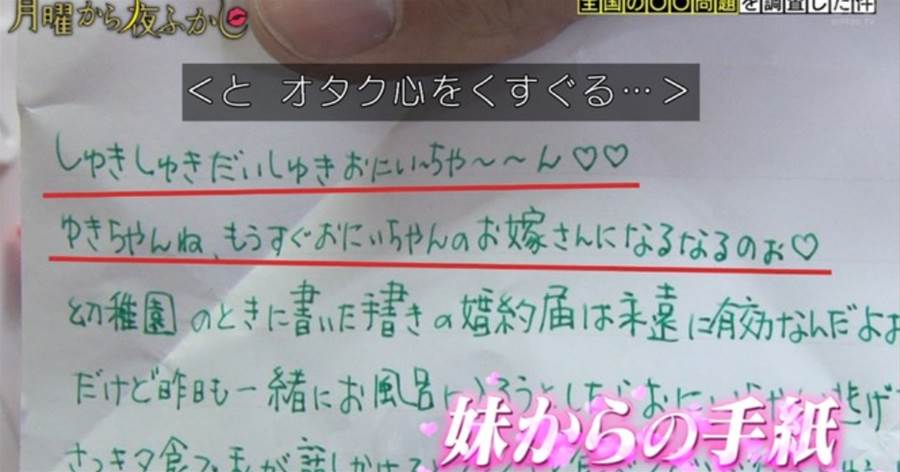 月曜から夜ふかし
全国の〇〇問題を調査した件
<と オタク心をくすぐる…>
しゅきしゅきだいしゅきおにいーちゃ〜〜ん♡♡
ゆきちゃんね、もうすぐおにいちゃんのお嫁さんになるなるのぉ♡
幼稚園のときに書いた手書きの婚約届は永遠に有効なんだよぉ
だけど昨日も一緒にお風呂に
妹からの手紙
さっき夕食